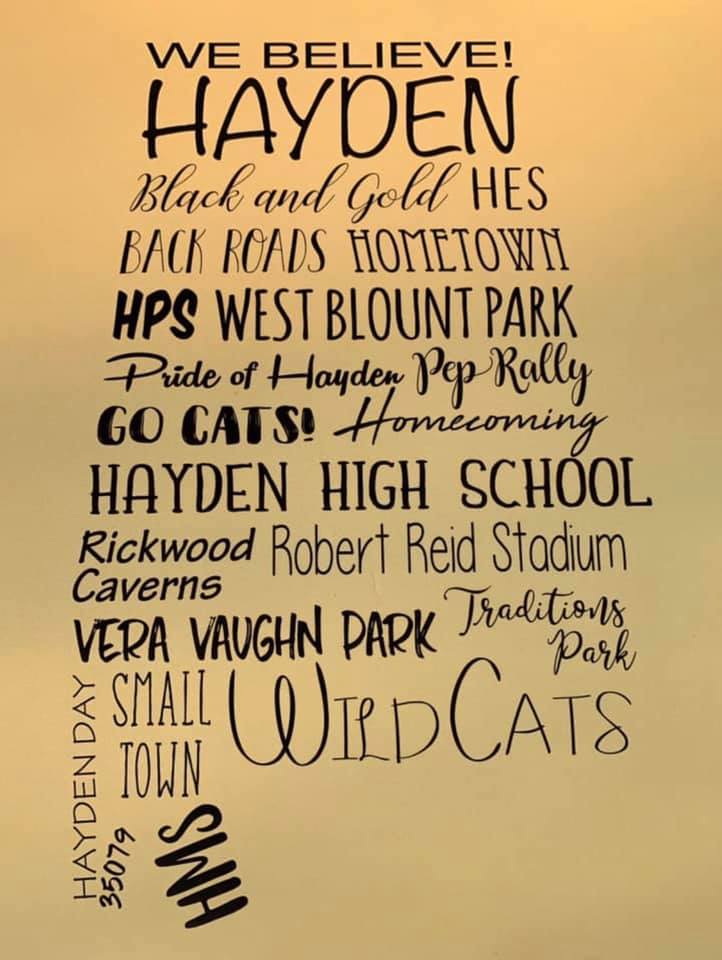 WE BELIEVE!
HAYDEN
Black and Gold HES
BACK ROADS HOMETOWN
HPS WEST BLOUNT PARK
Pride of Hayden Pep Rally
GO CATS! Homecoming
HAYDEN HIGH SCHOOL
Rickwood
Caverns
Robert Reid Stadium
VERA VAUGHN PARK
Traditions
Park
HAYDEN DAY
35079
SMALL
TOWN
WILDCATS
HMS